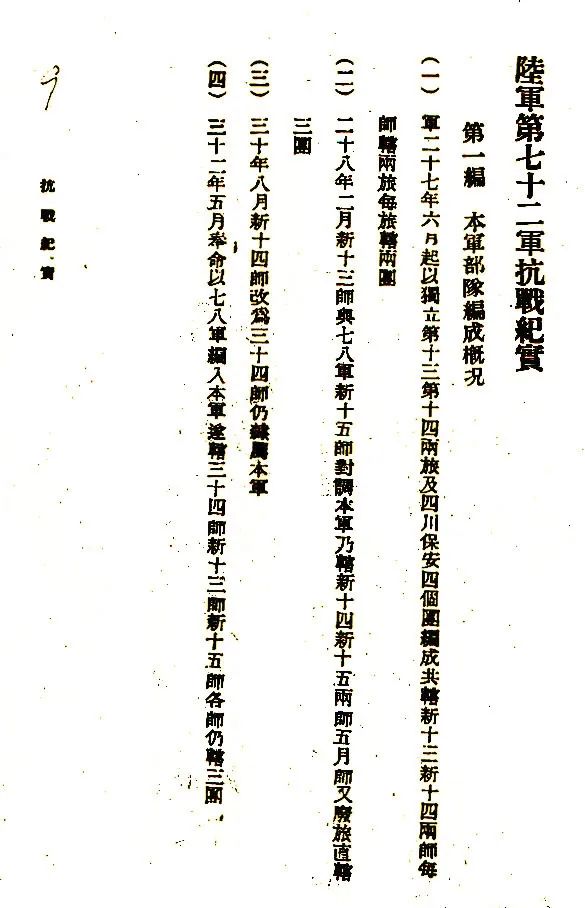 陸軍第七十二軍抗戰紀實
第一編　本軍部隊編成概况
（一）　軍二十七年六月起以獨立第十三第十四兩旅及四川保安四個團編成共轄新十三新十四兩師每
師轄兩旅每旅轄兩團
（二）　二十八年二月新十三師與七八軍新十五師對調本軍乃轄新十四新十五兩師五月師又廢旅直轄
三團
（三）　三十年八月新十四師改爲三十四師仍隸屬本軍
（四）　三十二年五月奉命以七八軍編入本軍遂轄三十四師新十三師新十五師各師仍轄三團
抗戰紀實